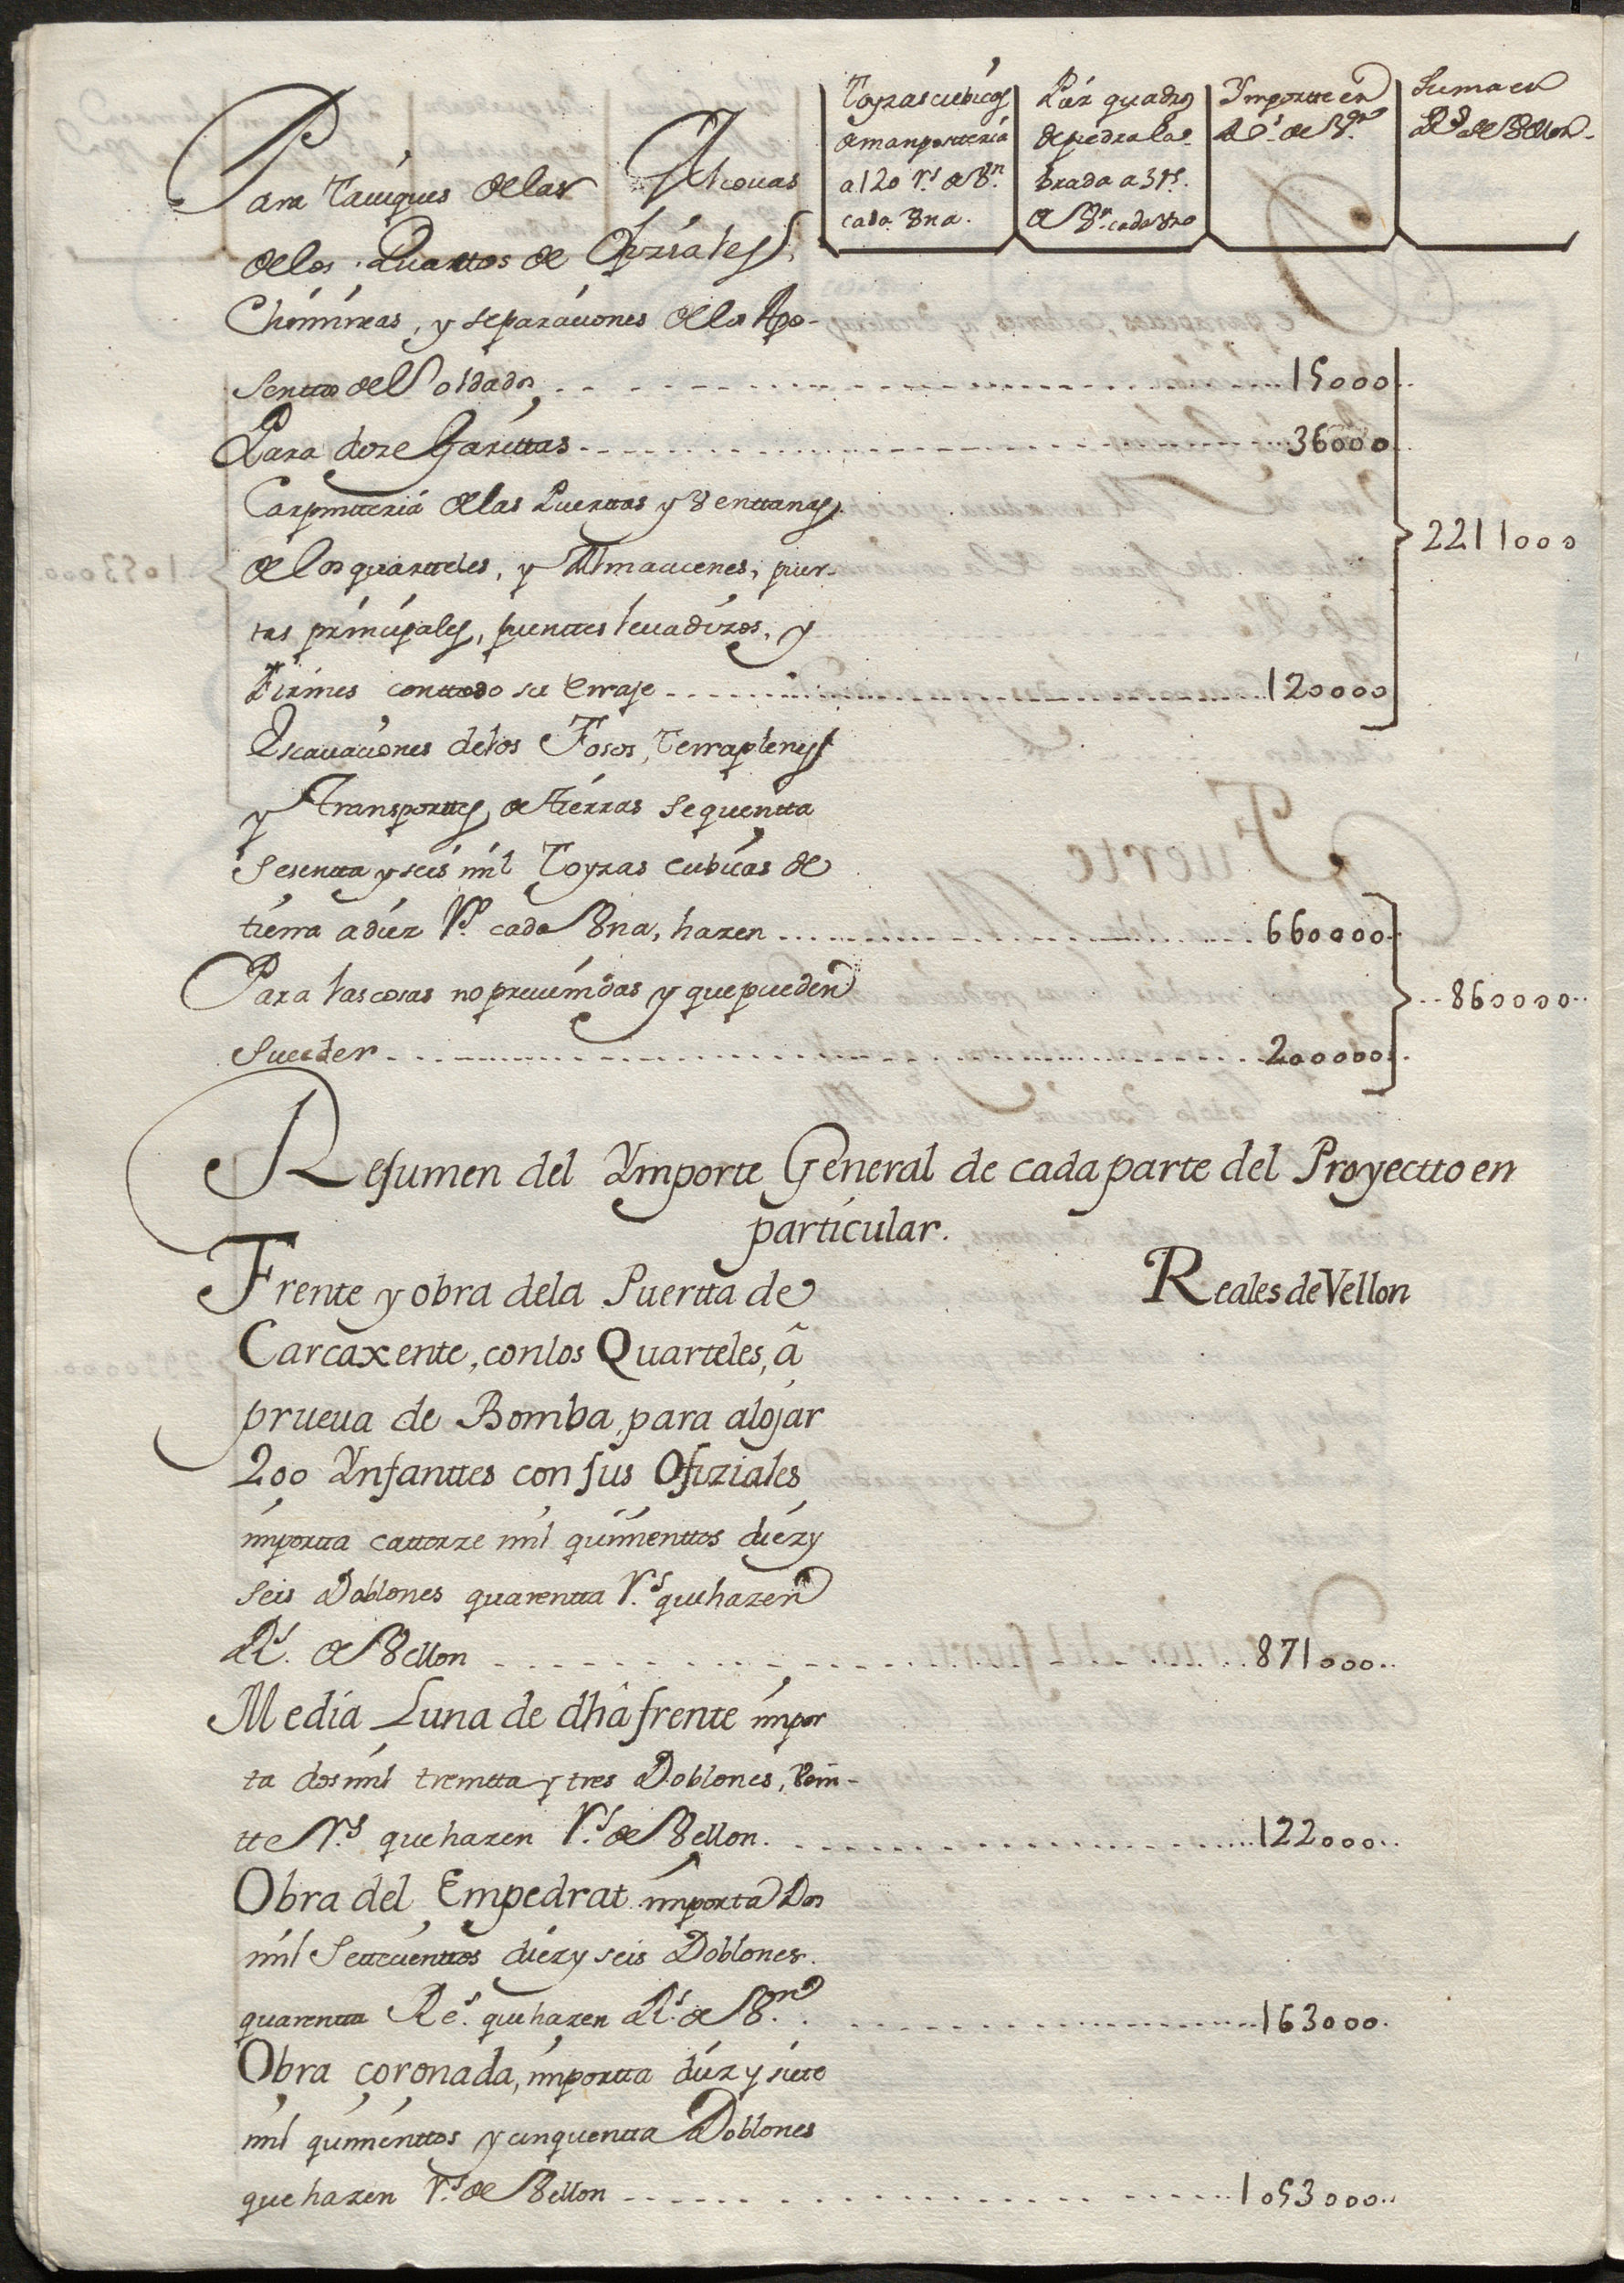 Toyzas cubicas
de manposteria
a 120 rs. de Vn.
cada Vna.
Piez quadros
de piedra la-
brada a 3 rs.
de Vn. cada Vno
Ymportte en
Rs. de Vn.
Suma en
Rs. de Vellon.
Para Taviques de las Alcouas
de los Quarttos de Ofiziales,
Chimineas, y separaciones de los Apo-
senttos de Soldados, 15000
Para doze Garittas 36000
Carpintteria de las Puerttas y Venttanas,
de los quartteles, y Almacenes, puer-
tas principales, puenttes leuadizos, y
firmes con ttodo su erraje 120000
2211000
Escauaciones de los Fosos, Terraplenes,
y Transporttes, de tierras se quentta
Sesentta y seis mil Toyzas cubicas de
tierra a diez Rs. cada Vna, hazen 660000
Para las cosas no preuenidas y que pueden
Suceder 200000
860000
Resumen del Ymporte General de cada parte del Proyectto en
particular.
Reales de Vellon
Frente y obra dela Puertta de
Carcaxente, con los Quarteles, â
prueua de Bomba, para alojar
200 Ynfanttes con sus Ofiziales
importta cattorze mil quinienttos diez y
seis Doblones quarentta rs. que hazen
Rs. de Vellon 871000
Media Luna de dhâ frente impor
ta dos mil treintta y tres Doblones, Vein-
tte rs. que hazen rs. de Vellon. 122000
Obra del Empedrat importa Dos
mil Settecienttos diez y seis Doblones.
quarentta Rs. que hazen Rs. de Vn. 163000
Obra coronada, importta diez y siete
mil quinienttos y cinquentta Doblones
que hazen rs. de Vellon 1053000